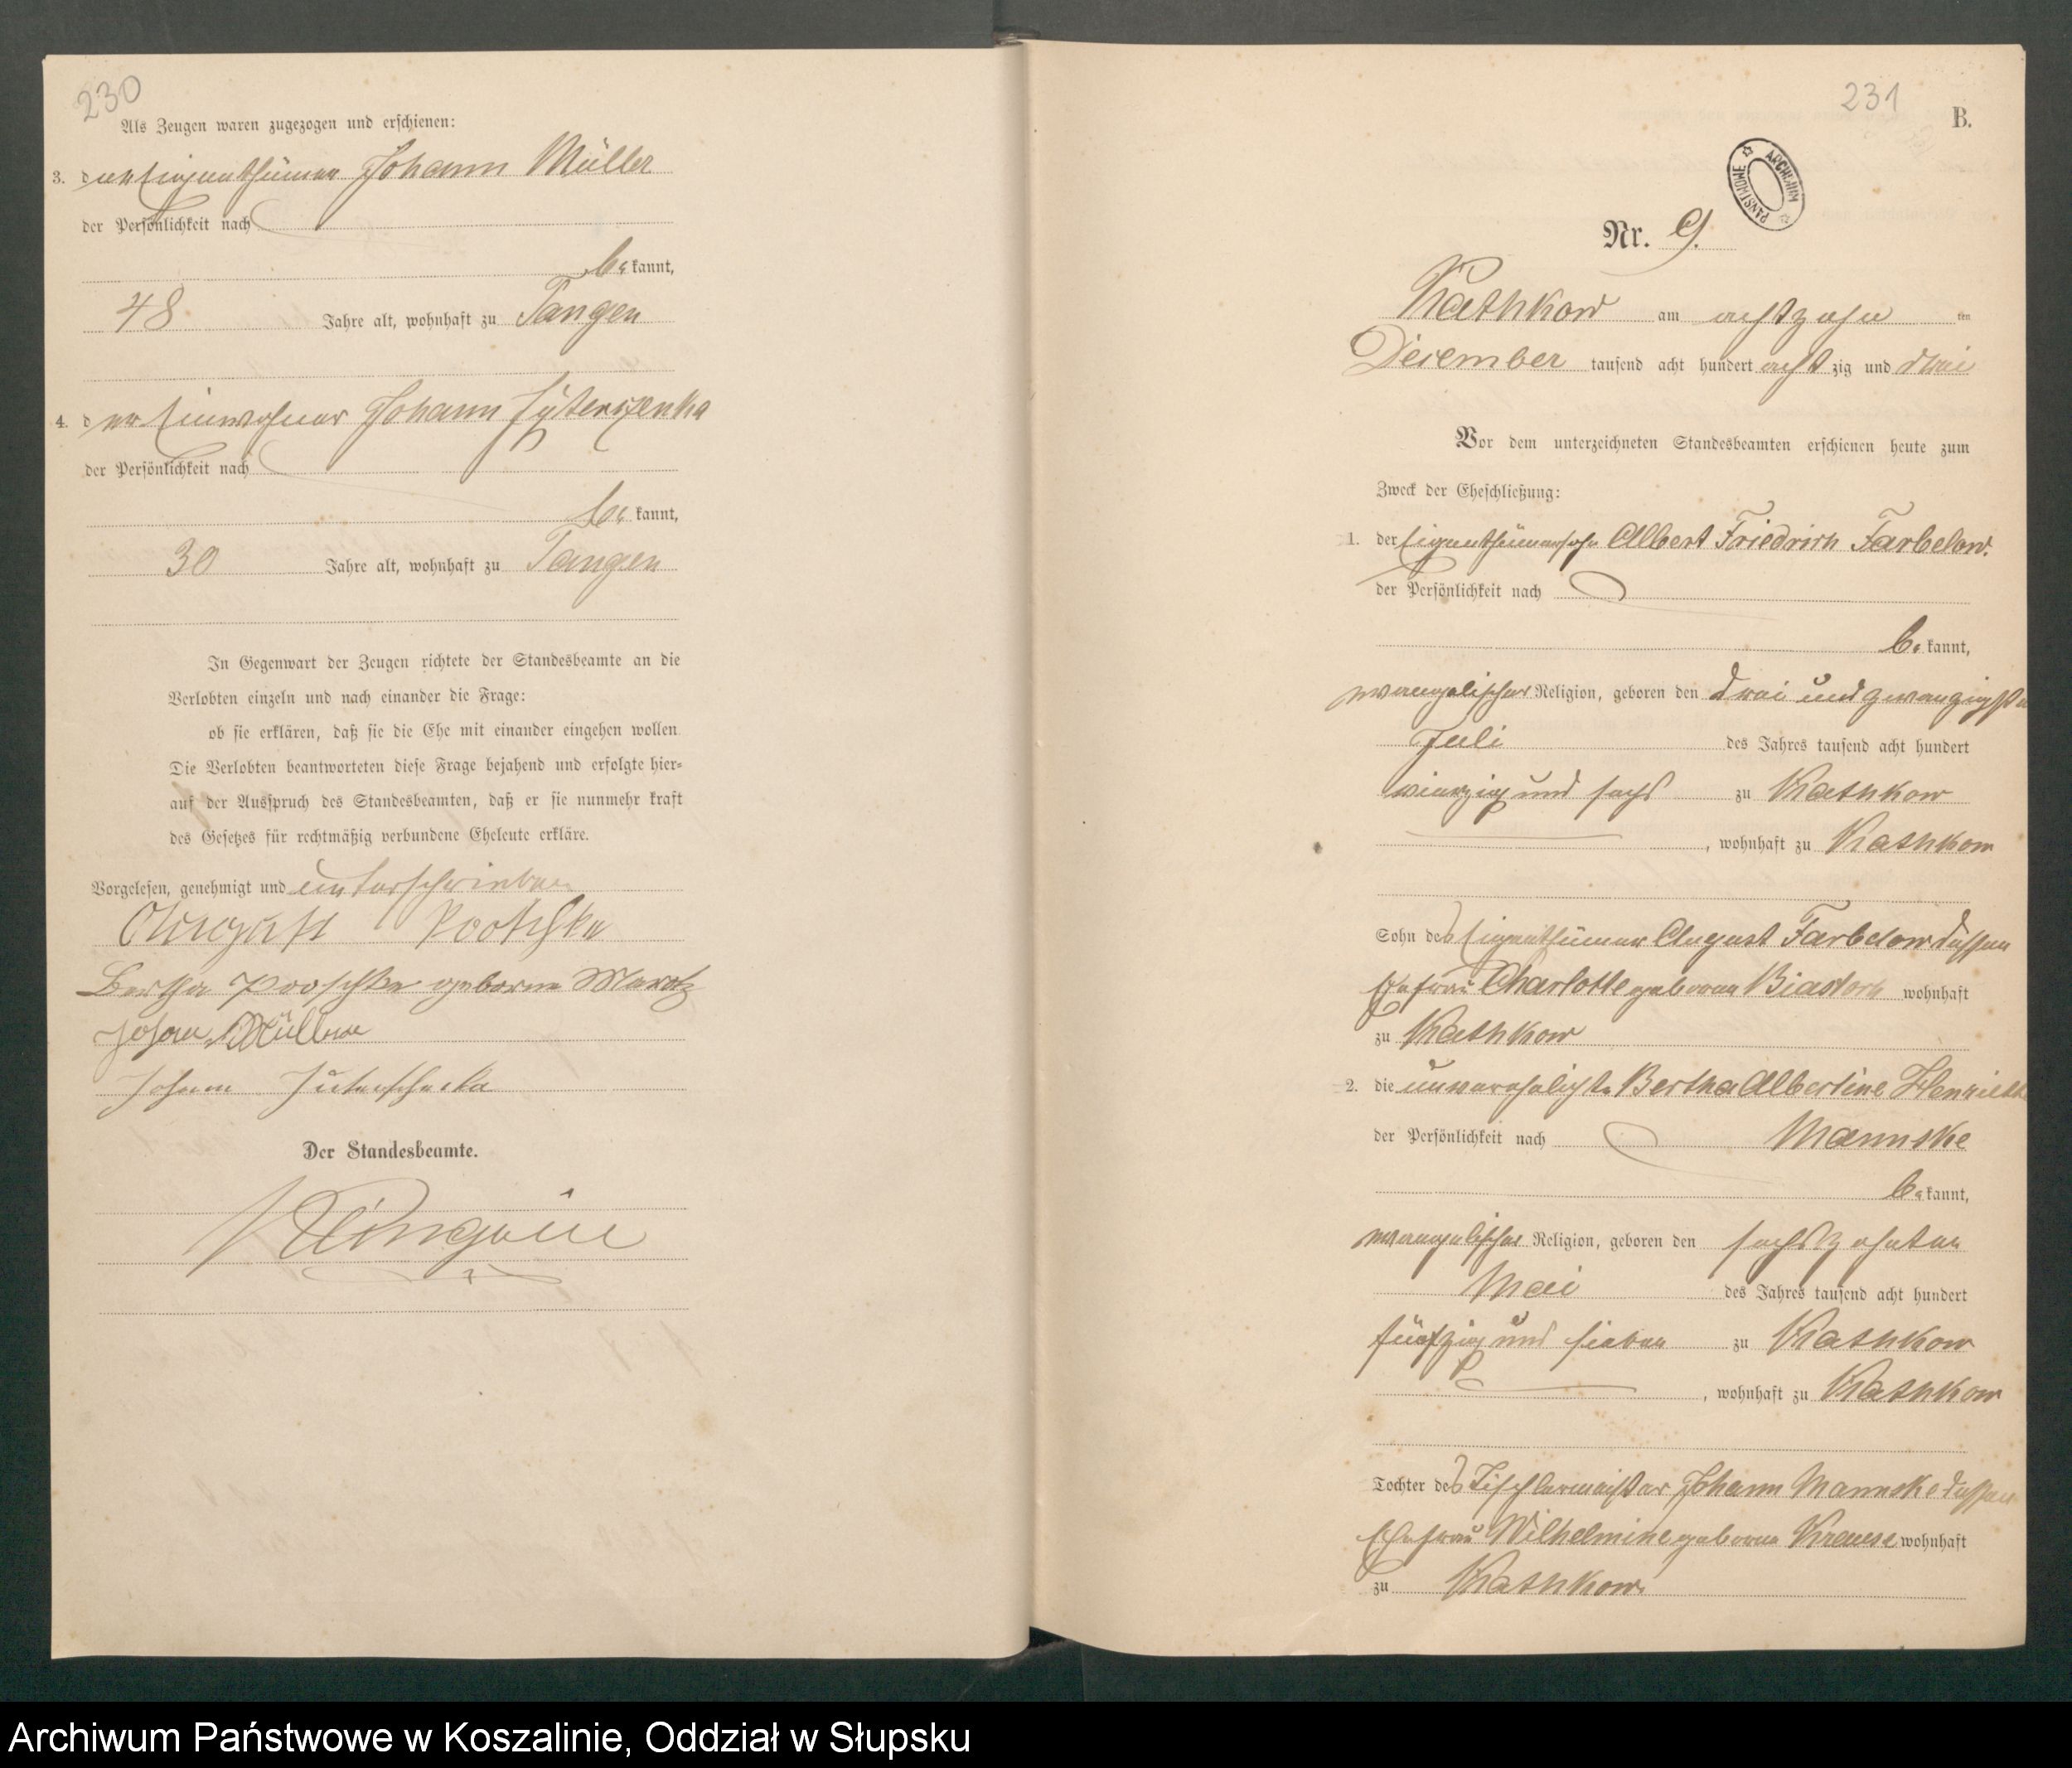 230
Als Zeugen waren zugezogen und erschienen:
3. der Eigenthümer Johann Müller
der Persönlichkeit nach
bekannt,
48 Jahre alt, wohnhaft zu Tangen
4. der Einwohner Johann Jüterszenka
der Persönlichkeit nach
bekannt,
30 Jahre alt, wohnhaft zu Tangen
In Gegenwart der Zeugen richtete der Standesbeamte an die
Verlobten einzeln und nach einander die Frage:
ob sie erklären, daß sie die Ehe mit einander eingehen wollen.
Die Verlobten beantworteten diese Frage bejahend und erfolgte hier-
auf der Ausspruch des Standesbeamten, daß er sie nunmehr kraft
des Gesetzes für rechtmäßig verbundene Eheleute erkläre.
Vorgelesen, genehmigt und unterschrieben
August Pooschke
Bertha Pooschke geborne Marotz
Johan Müller
Johann Jüterschenka
Der Standesbeamte.
231
B.
ARCHIWUM PAŃSTWOWE
Nr. 9.
Kathkow am achtzehn ten
December tausend acht hundert achtzig und drei
Vor dem unterzeichneten Standesbeamten erschienen heute zum
Zweck der Eheschließung:
1. der Eigenthümersohn Albert Friedrich Farbelow.
der Persönlichkeit nach
bekannt,
evangelischer Religion, geboren den drei und zwanzigsten
Juli des Jahres tausend acht hundert
vierzig und sechs zu Kathkow
, wohnhaft zu Kathkow
Sohn des Eigenthümer August Farbelow dessen
Ehefrau Charlotte geborne wohnhaft
zu Kathkow
2. die unverehelichte Bertha Albertine Henriette
der Persönlichkeit nach Mannske
bekannt,
evangelischer Religion, geboren den sechszehnten
Mai des Jahres tausend acht hundert
fünfzig und sieben zu Kathkow
, wohnhaft zu Kathkow
Tochter des Tischlermeister Johann Mannske dessen
Ehefrau Wilhelmine geborne Krause wohnhaft
zu Kathkow.
Archiwum Państwowe w Koszalinie, Oddział w Słupsku